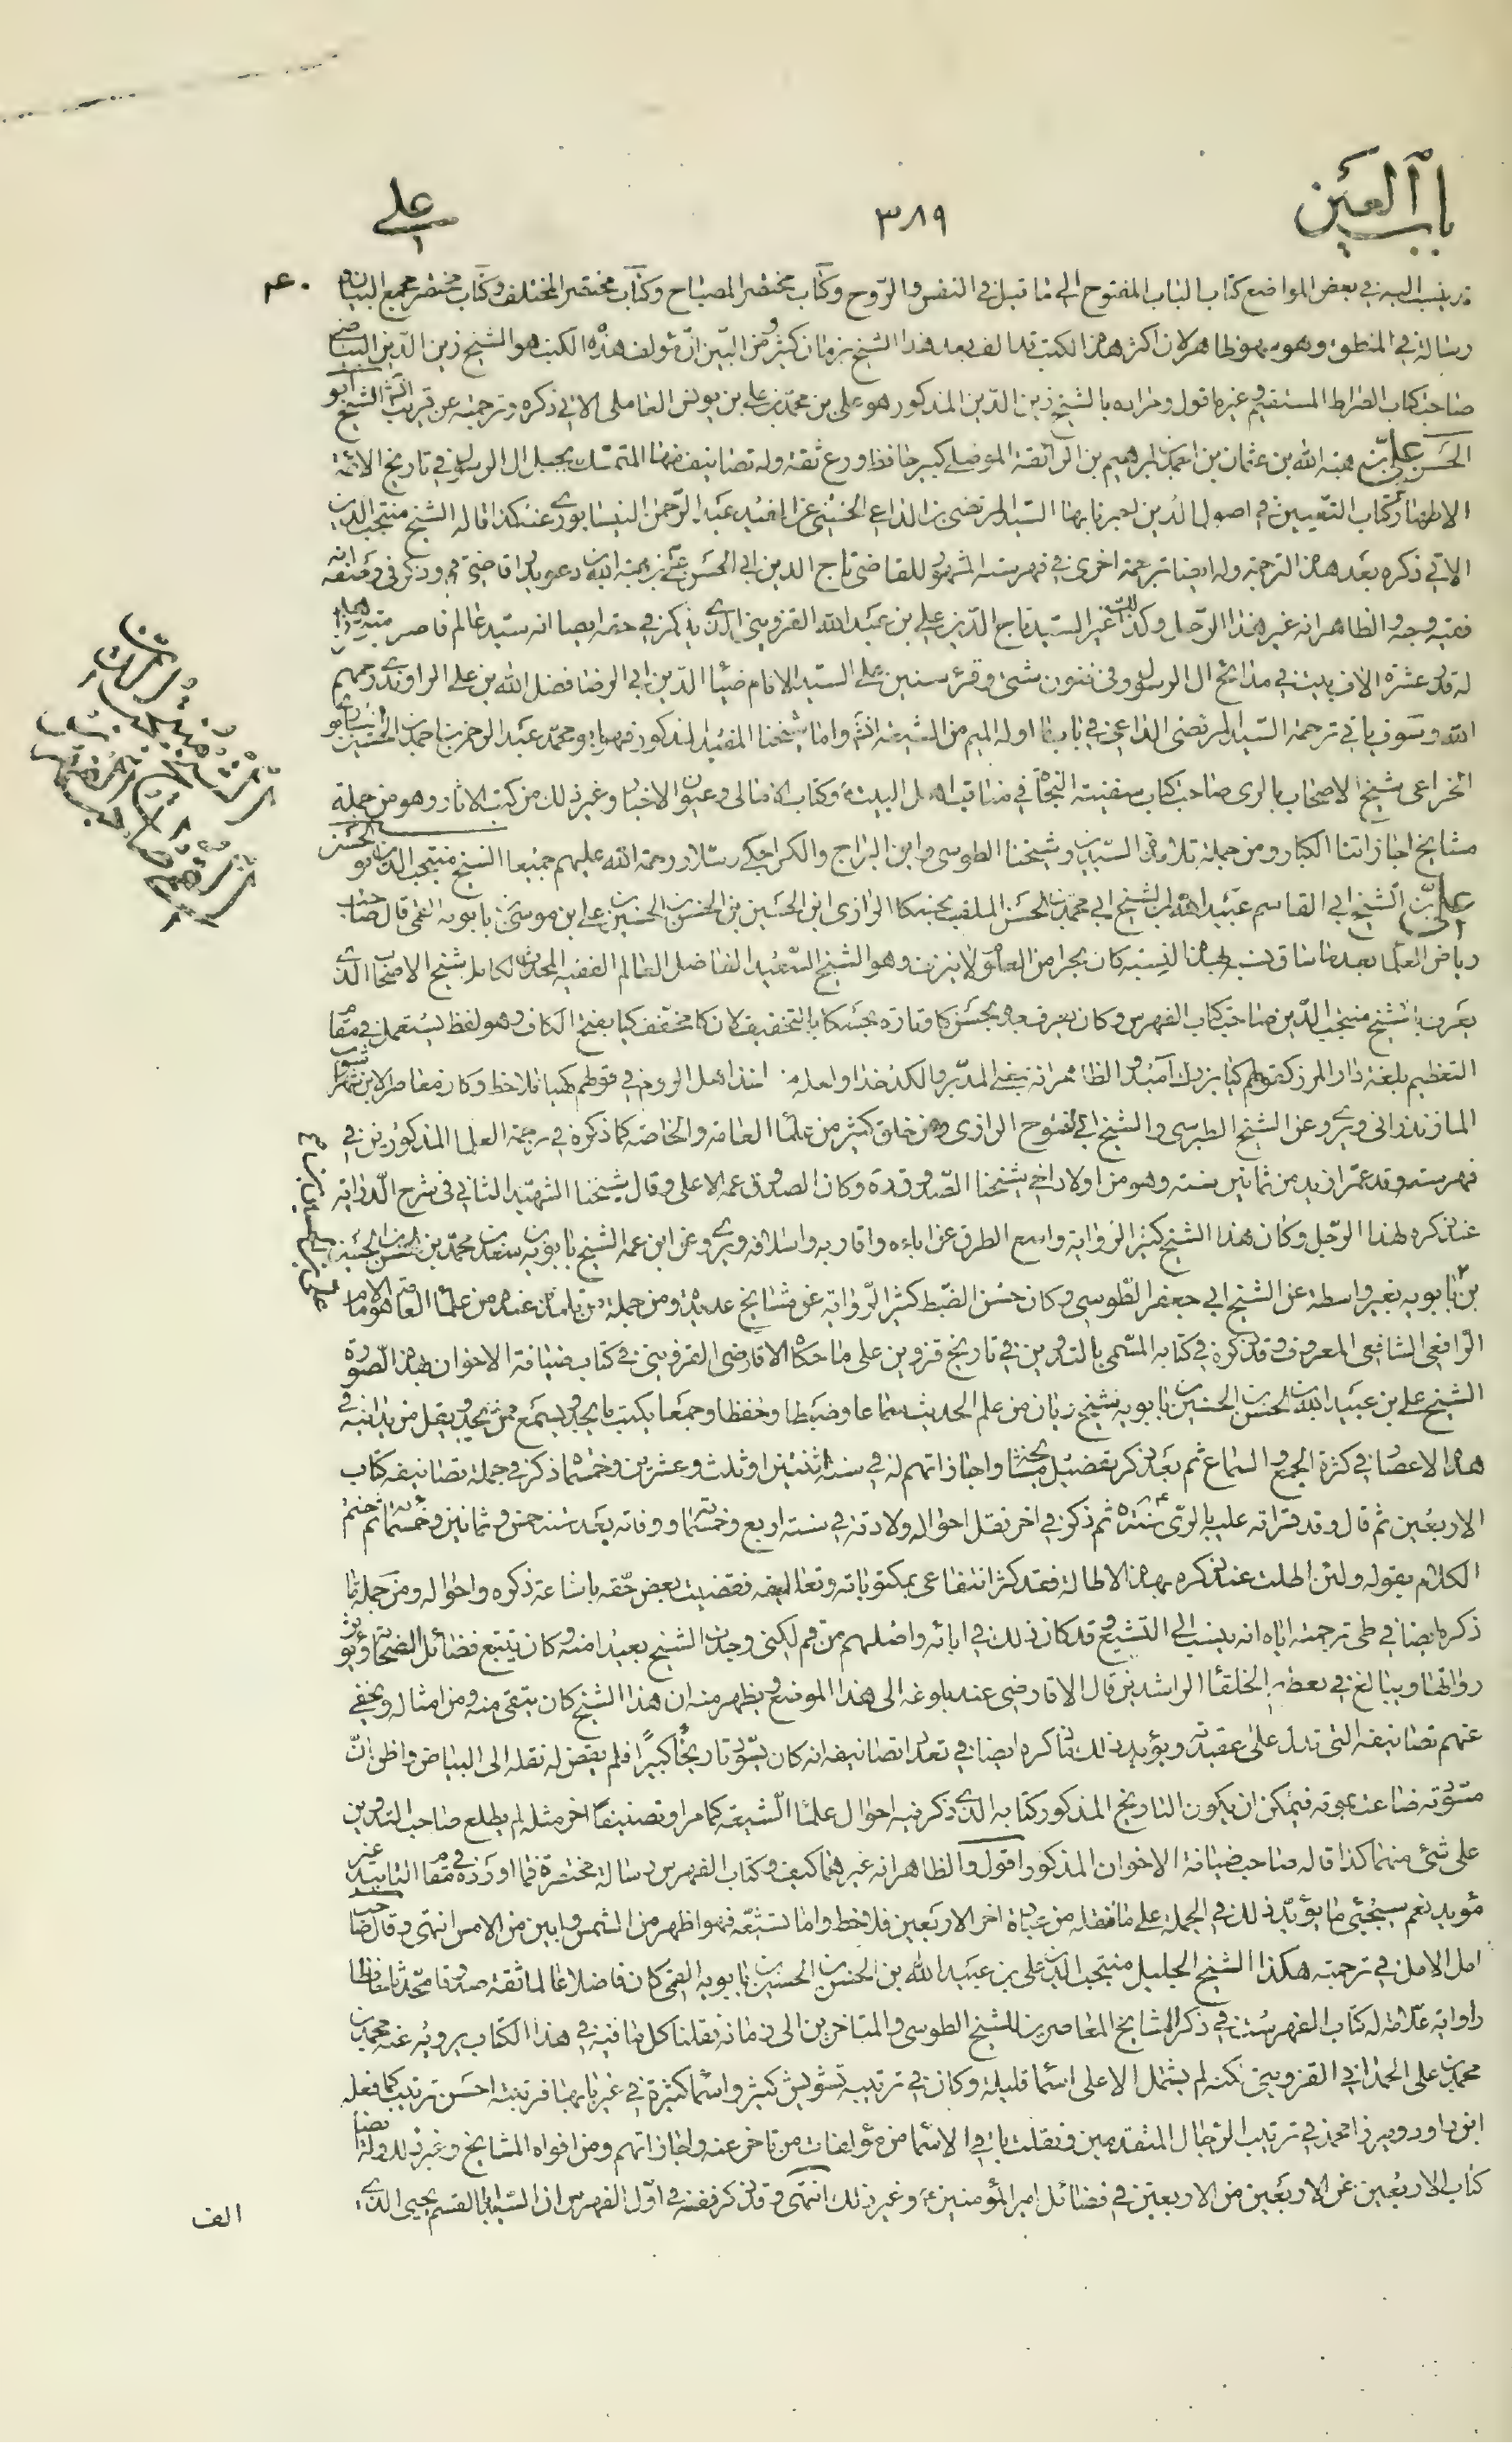 باب العين
٣٨٩
علي
قد ينسب اليه في بعض المواضع كتاب الباب المفتوح الى ما قيل في النفس والروح وكتاب مختصر المصباح وكتاب مختصر المختلف وكتاب مختصر مجمع البيان و
رسالة في المنطق وهو سهو ظاهر لان اكثر هذه الكتب قد الف بعد هذا الشيخ بزمان كثير ومن البين ان مؤلف هذه الكتب هو الشيخ زين الدين البياضي
صاحب كتاب الصراط المستقيم وغيره اقول ومراده بالشيخ زين الدين المذكور هو علي بن محمد بن علي بن يونس العاملي الاتي ذكره وترجمته عن قريب انش الشيخ ابو
الحسن علي بن هبة الله بن عثمان بن احمد بن ابرهيم بن الرائقة الموصلي كبير حافظ ورع ثقة وله تصانيف منها المتمسك بحبل ال الرسول في تاريخ الائمة
الاطهار وكتاب اليقين في اصول الدين اخبرنا بها السيد المرتضى بن الداعي الحسيني عن المفيد عبد الرحمن النيسابوري عنه كذا قاله الشيخ منتجب الدين
الاتي ذكره بعد هذه الترجمة وله ايضا ترجمة اخرى في فهرسته المشهور للقاضي تاج الدين ابي الحسن علي بن هبة الله بن دعويدار قاضي قم وذكر في وصفه انه
فقيه وجه والظاهر انه غير هذا الرجل وكذلك غير السيد تاج الدين علي بن عبد الله القزويني الذي يذكر في حقه ايضا انه سيد عالم فاصر
له قدر عشرة الاف بيت في مدائح ال الرسول وفي فنون شتى وقرء سنين على السيد الامام ضياء الدين ابي الرضا فضل الله بن علي الراوندي رحمهم
الله وسوف ياتي ترجمة السيد المرتضى الداعي في باب ما اوله الميم من الشيعة انش واما شيخنا المفيد المذكور فهو ابو محمد عبد الرحمن بن احمد بن الحسين النيسابوري
الخزاعي شيخ الاصحاب بالري صاحب كتاب سفينة النجاة في مناقب اهل البيت وكتاب الامالي وعيون الاخبار وغير ذلك من كتب الاثار وهو من جملة
مشايخ اجازاتنا الكبار ومن جملة تلامذة السيدين وشيخنا الطوسي وابن البراج والكراجكي وسلار رحمة الله عليهم جميعا الشيخ منتجب الدين ابو الحسن
علي بن الشيخ ابي القاسم عبيد الله بن الشيخ ابي محمد الحسن الملقب بحسكا الرازي ابن الحسين بن الحسن بن الحسين بن علي بن موسى بن بابويه القمي قال صاحب
رياض العلما بعد ما ساق نسبه بهذه النسبة كان بحرا من العلوم لا ينزف وهو الشيخ السعيد الفاضل العالم الفقيه المحدث الكامل شيخ الاصحاب الذي
يعرف بالشيخ منتجب الدين صاحب كتاب الفهرس وكان يعرف جده بحسن كا وتارة بحسكا بالتخفيف لان كا مخفف كيا بفتح الكاف وهو لفظ يستعمل في مقام
التعظيم بلغة دار المرز كقولهم كيا بزرك اميد والظاهر انه بمعنى المدبر والكدخدا ولعله اخذ اهل الروم في قولهم كهيا فلاحظ وكان معاصرا لابن شهراشوب
المازندراني ويروي عن الشيخ الطبرسي والشيخ ابي الفتوح الرازي وعن خلق كثير من علماء العامة والخاصة كما ذكره في ترجمة العلما المذكورين في
فهرسته وقد عمر ازيد من ثمانين سنة وهو من اولاد اخي شيخنا الصدوق قده وكان الصدوق عمه الاعلى وقال شيخنا الشهيد الثاني في شرح الدراية
عند ذكره لهذا الرجل وكان هذا الشيخ كثير الرواية واسع الطرق عن ابائه واقاربه واسلافه ويروي عن ابن عمه الشيخ بابويه بن سعد بن محمد بن الحسن بن الحسين
بن بابويه بغير واسطة عن الشيخ ابي جعفر الطوسي وكان حسن الضبط كثير الرواية عن مشايخ عديدة ومن جملة من تلمذ عنده من علماء العامة هو الامام
الرافعي الشافعي المعروف وقد ذكره في كتابه المسمى بالتدوين في تاريخ قزوين على ما حكاه الاقا رضي القزويني في كتاب ضيافة الاخوان بهذه الصورة
الشيخ علي بن عبيد الله بن الحسن بن الحسين بن بابويه شيخ ريان من علم الحديث سماعا وضبطا وحفظا وجمعا يكتب ما يجد ويسمع ممن يجد ويقل من يدانيه في
هذه الاعصار في كثرة الجمع والسماع ثم بعد ذكر تفصيل مشايخه واجازاتهم له في سنة اثنتين او ثلث وعشرين وخمسمائة ذكر في جملة تصانيفه كتاب
الاربعين ثم قال وقد قراته عليه بالري سنة ثم ذكر في اخر نقل احواله ولادته في سنة اربع وخمسمائة ووفاته بعد سنة خمس وثمانين وخمسمائة ثم ختم
الكلام بقوله ولئن اطلت عند ذكره بهذه الاطالة فقد كثر انتفاعي بمكتوباته وتعاليقه فقضيت بعض حقه باشاعة ذكره واحواله ومن جملة ما
ذكره ايضا في طي ترجمته اياه انه ينسب الى التشيع وقد كان ذلك في ابائه واصلهم من قم لكني وجدت الشيخ بعيدا منه وكان يتتبع فضائل الصحابة ويؤثر
رواتها ويبالغ في تعظيم الخلفاء الراشدين قال الاقا رضي عند بلوغه الى هذا الموضع ويظهر منه ان هذا الشيخ كان يتقي منه ومن امثاله ويخفي
عنهم تصانيفه التي تدل على عقيدته ويؤيد ذلك ما ذكره ايضا في تعداد تصانيفه انه كان يسود تاريخا كبيرا فلم يقض له نقله الى البياض واظن ان
مسودته ضاعت بموته فيمكن ان يكون التاريخ المذكور كتابه الذي ذكر فيه احوال علماء الشيعة كما مر او تصنيفا اخر مثله لم يطلع صاحب التدوين
على شئ منهما كذا قاله صاحب ضيافة الاخوان المذكور اقول والظاهر انه غيرهما كيف وكتاب الفهرس رسالة مختصرة فما اورده في مقام التاييد غير
مؤيد نعم سيجئ ما يؤيد ذلك في الجملة على ما نقله من عبارة اخر الاربعين فلاحظ واما تشيعه فهو اظهر من الشمس وابين من الامس انتهى وقال صاحب
امل الامل في ترجمته هكذا الشيخ الجليل منتجب الدين علي بن عبيد الله بن الحسن بن الحسين بن بابويه القمي كان فاضلا عالما ثقة صدوقا محدثا حافظا
راوية علامة له كتاب الفهرست في ذكر المشايخ المعاصرين للشيخ الطوسي والمتاخرين الى زمانه نقلنا كل ما فيه في هذا الكتاب يرويه عنه محمد بن
محمد بن علي الحمداني القزويني لكنه لم يشتمل الا على اسماء قليلة وكان في ترتيبه تشويش كثير واسماء كثيرة في غير بابها فرتبته احسن ترتيب كما فعله
ابن داود وميرزا محمد في ترتيب الرجال المتقدمين ونقلت باقي الاسماء من مؤلفات من تاخر عنه واجازاتهم ومن افواه المشايخ وغير ذلك وله ايضا
كتاب الاربعين عن الاربعين من الاربعين في فضائل امير المؤمنين ع وغير ذلك انتهى وقد ذكر نفسه في اول الفهرس ان السيد ابا القسم يحيى الذي
الف